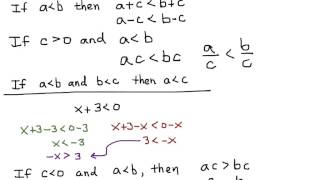 If a<b then a+c<b+c
a-c<b-c
If c>0 and a<b
ac<bc a/c < b/c
If a<b and b<c then a<c
x+3<0
x+3-3<0-3 x+3-x<0-x
x<-3 3<-x
-x>3
If c<0 and a<b, then ac>bc